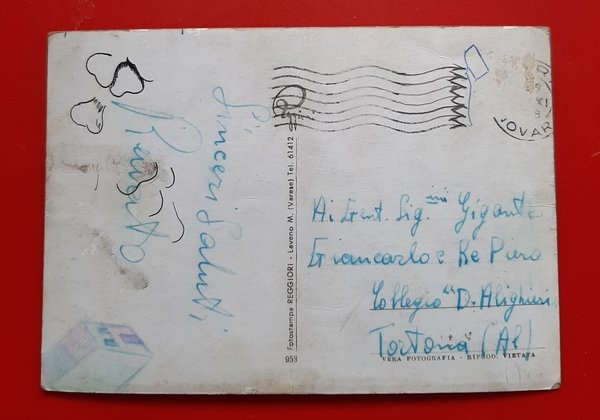 Sinceri Saluti,
Renato
Fotostampa REGGIORI - Laveno M. (Varese) Tel. 61412
Ai Gent. Sig.mo Gigante
Giancarlo e Re Piero
Collegio "D. Alighieri
Tortona (Al)
953
VERA FOTOGRAFIA - RIPROD. VIETATA